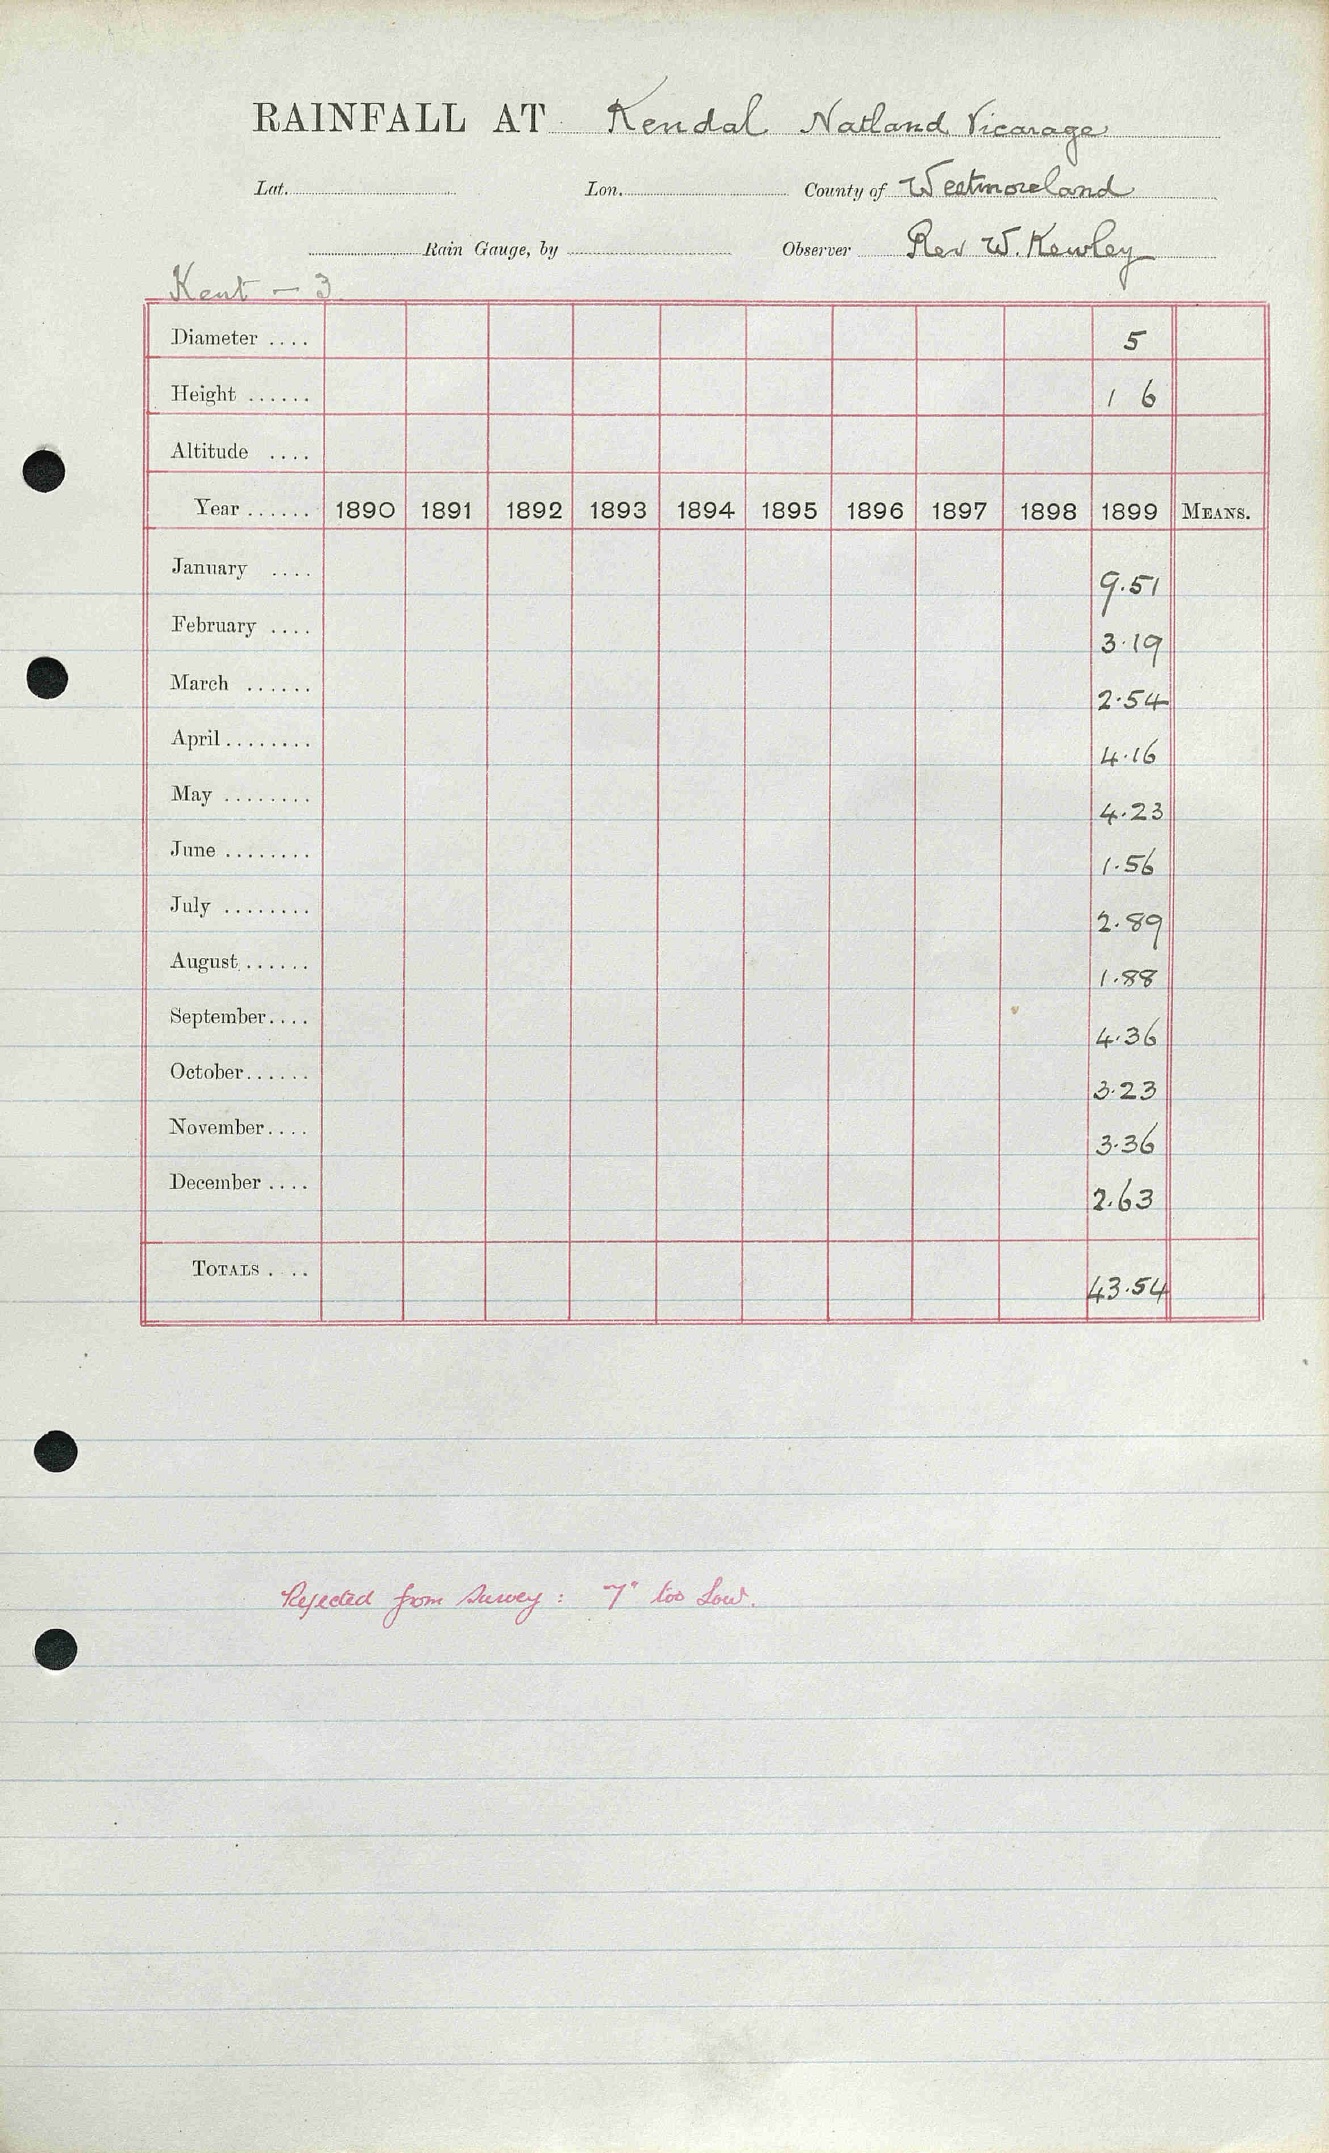 RAINFALL AT Kendal Natland Vicarage
Lat. Lon. County of Westmoreland
Rain Gauge, by Observer Rev W. Kewley
Kent - 3
Diameter .... 5
Height ...... 1 6
Altitude ....
Year ...... 1890 1891 1892 1893 1894 1895 1896 1897 1898 1899 MEANS.
January .... 9.51
February .... 3.19
March ...... 2.54
April ........ 4.16
May ........ 4.23
June ........ 1.56
July ........ 2.89
August ...... 1.88
September .... 4.36
October ...... 3.23
November .... 3.36
December .... 2.63
TOTALS . .. 43.54
Rejected from Survey : 7" too Low.